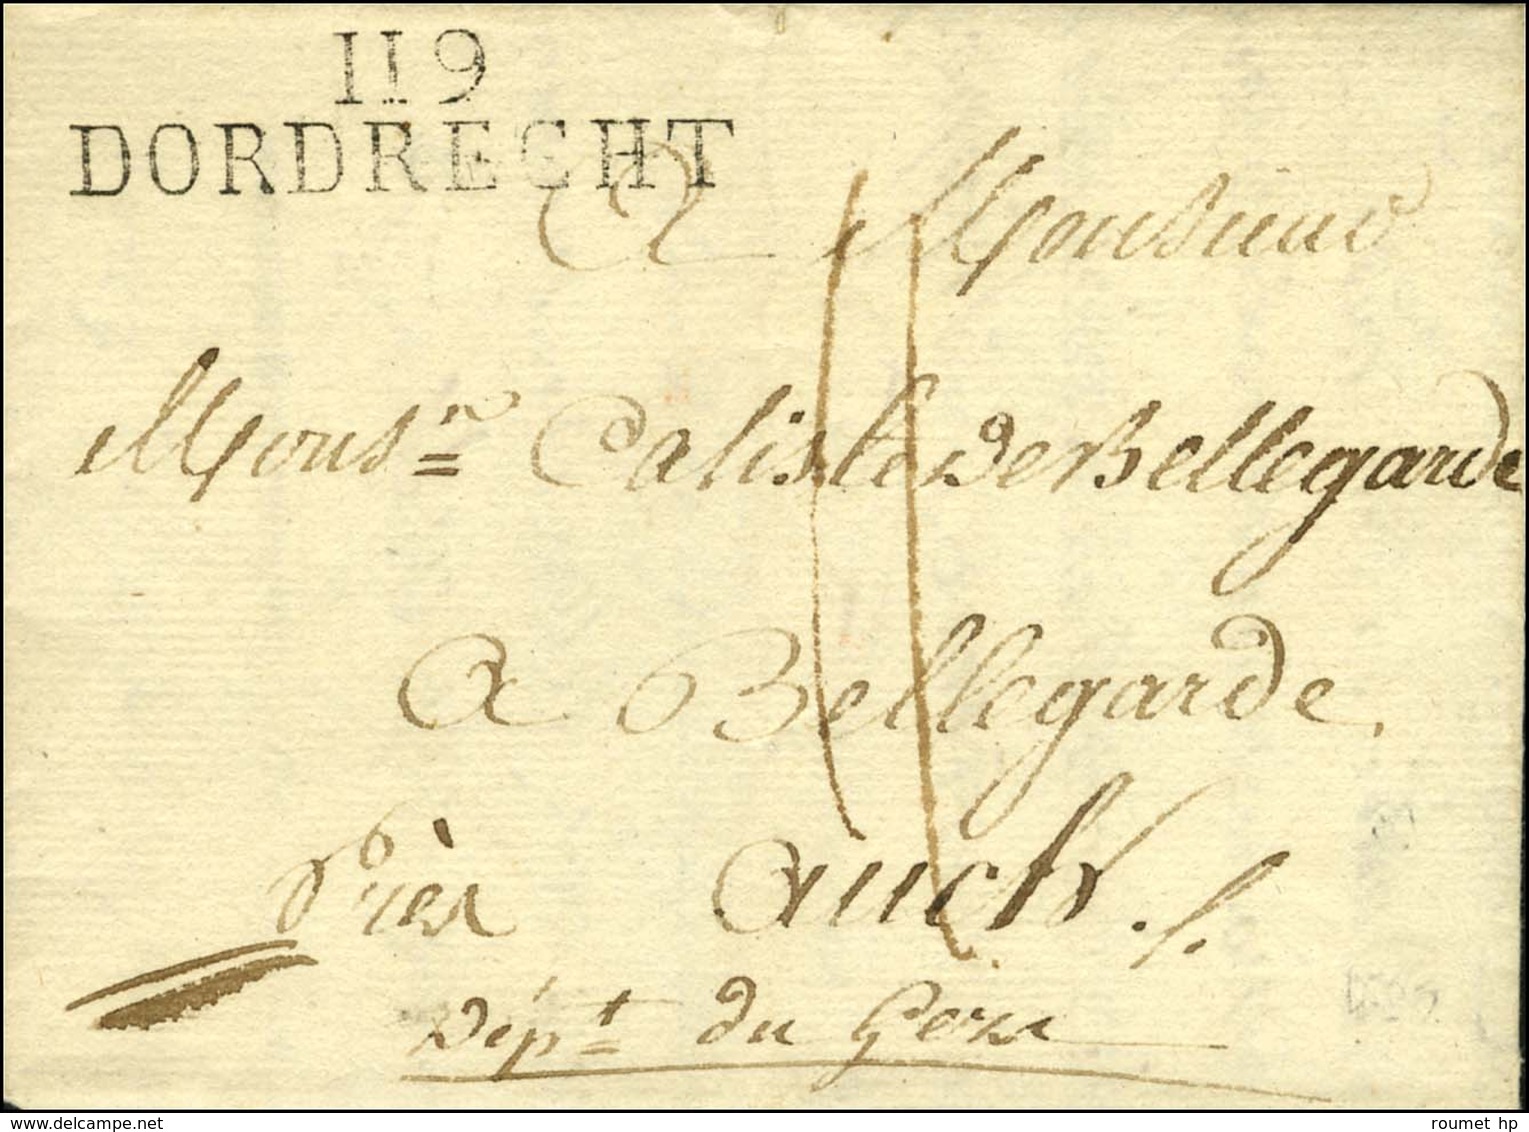 119
DORDRECHT
A Monsieur
Monsr Caliste De Bellegarde
a Bellegarde
Près auch ./.
Dépt du Gers
roumet hp